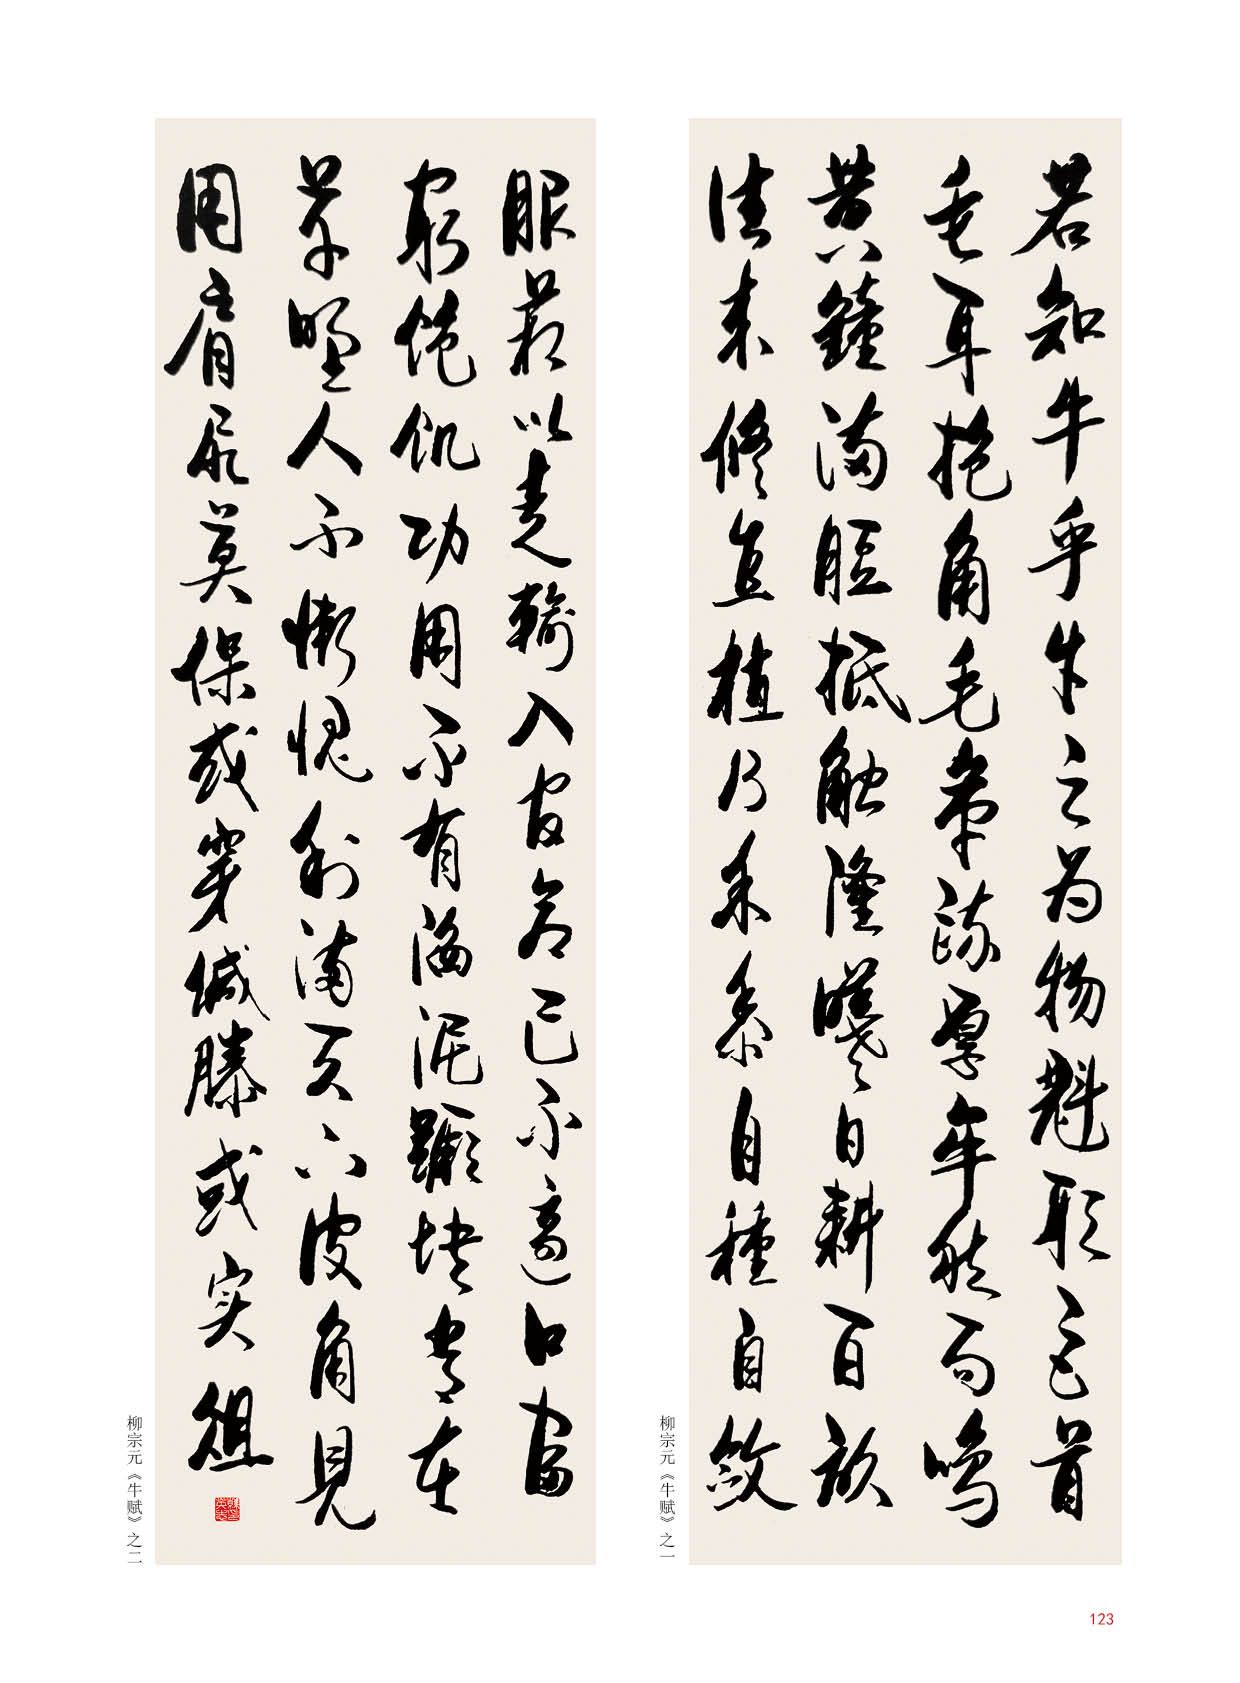 若知牛乎牛之为物魁形巨首
垂耳抱角毛革疏厚牟然而鳴
黄鐘满脰抵觸隆曦日耕百畝
往来修直植乃禾黍自種自斂
服箱以走輸入官倉己不適口富
窮饱飢功用不有陷泥蹶块常在
草野人不慚愧利满天下皮角見
用肩尻莫保或穿缄滕或实俎
柳宗元《牛赋》之一
柳宗元《牛赋》之二
123